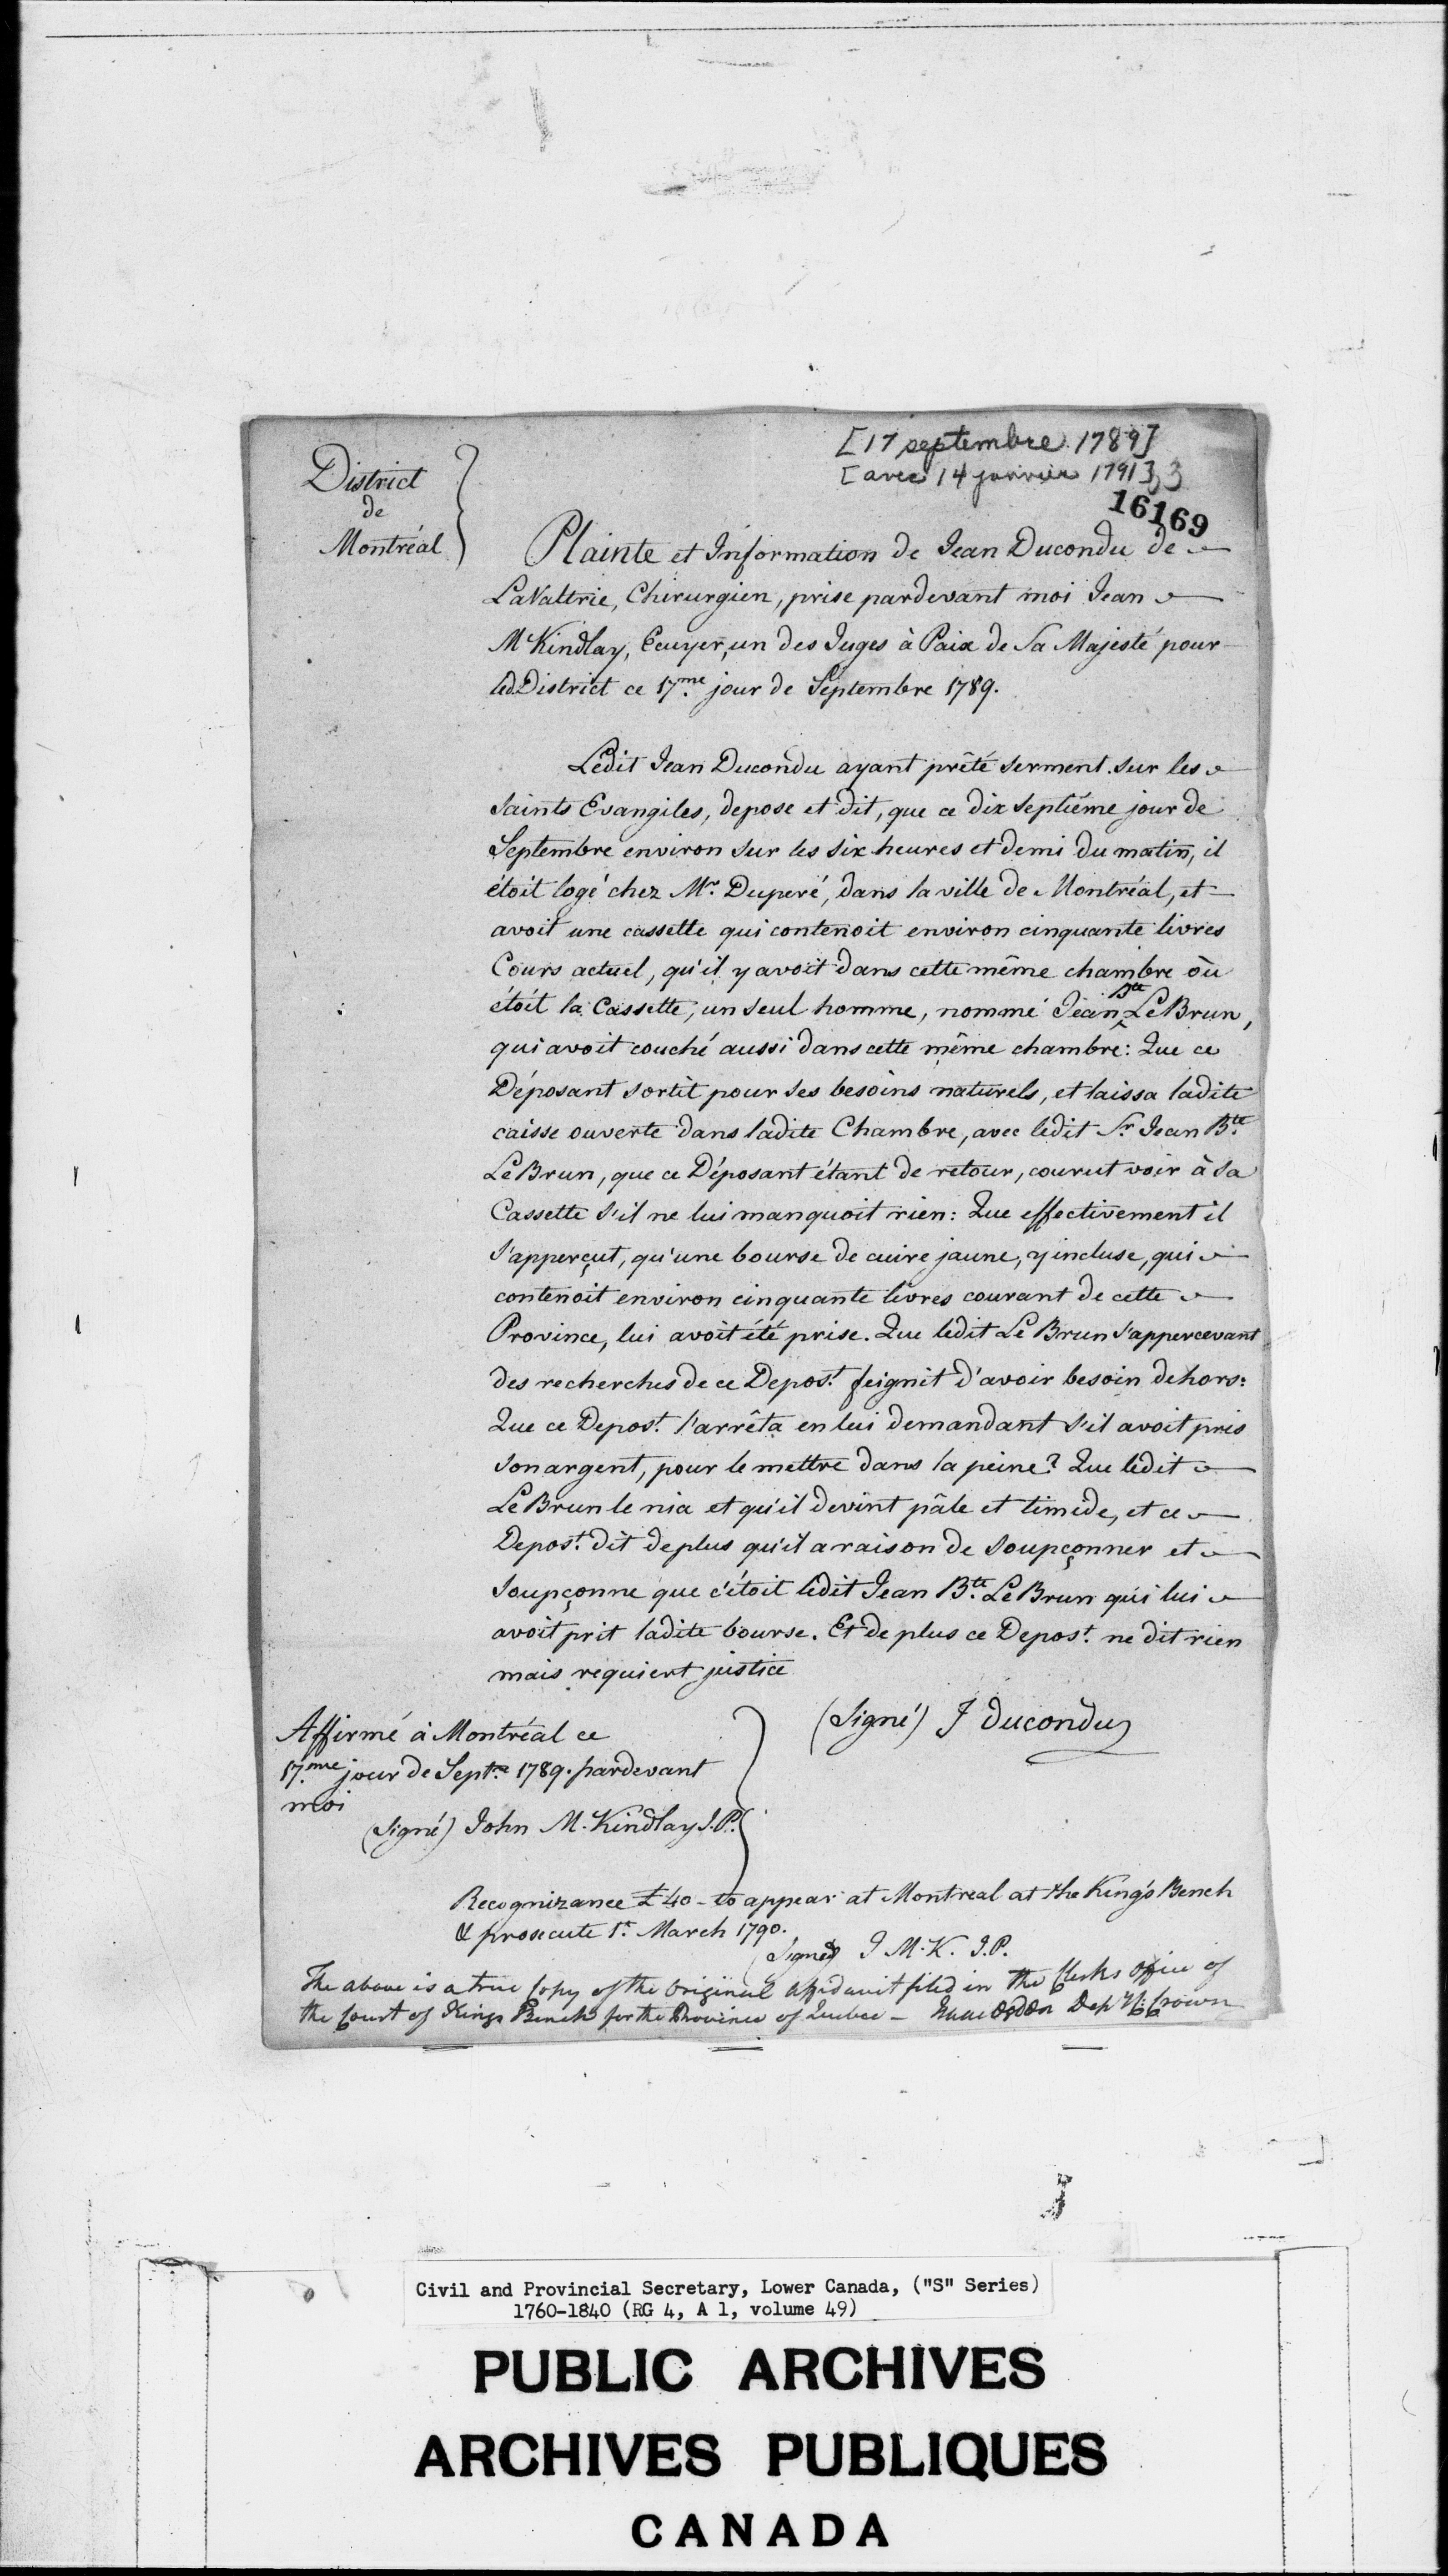 [17 septembre 1789]
[avec 14 janvier 1791]
16169
District
de
Montréal
Plainte et Information de Jean Ducondu de
LaValtrie, Chirurgien, prise pardevant moi Jean
McKindlay, Ecuyer, un des Juges à Paix de Sa Majesté pour
led. District ce 17.me jour de Septembre 1789.
Ledit Jean Ducondu ayant prêté serment sur les
saints Evangiles, depose et dit, que ce dix septiéme jour de
Septembre environ sur les six heures et demi du matin, il
étoit logé chez Mr. Duperé, dans la ville de Montréal, et
avoit une cassette qui contenoit environ cinquante livres
Cours actuel, qu'il y avoit dans cette même chambre où
étoit la Cassette, un seul homme, nommé Jean Bte LeBrun,
qui avoit couché aussi dans cette même chambre: Que ce
Déposant sortit pour ses besoins naturels, et laissa ladite
caisse ouverte dans ladite Chambre, avec ledit Sr. Jean Bte.
LeBrun, que ce Déposant étant de retour, courut voir à sa
Cassette s'il ne lui manquoit rien: Que effectivement il
s'apperçut, qu'une bourse de cuire jaune, y incluse, qui
contenoit environ cinquante livres courant de cette
Province, lui avoit été prise. Que ledit Le Brun s'appercevant
des recherches de ce Depost. feignit d'avoir besoin dehors:
Que ce Depost. l'arrêta en lui demandant s'il avoit pris
son argent, pour le mettre dans la peine? Que ledit
LeBrun le nia et qu'il devint pâle et timide, et ce
Depost. dit de plus qu'il a raison de soupçonner et
soupçonne que c'étoit ledit Jean Bte. LeBrun qui lui
avoit prit ladite bourse. Et de plus ce Depost. ne dit rien
mais requiert justice
(Signé) J Ducondu
Affirmé à Montréal ce
17.me jour de Septre. 1789. pardevant
moi
(Signé) John McKindlay J.P.
Recognizance £40 - to appear at Montreal at the King's Bench
& prosecute 1st. March 1790.
Signed J McK. J.P.
The above is a true Copy of the Original Affidavit filed in the Clerks Office of
the Court of Kings Bench for the Province of Quebec - Isaac Ogden Dep Crown
Civil and Provincial Secretary, Lower Canada, ("S" Series)
1760-1840 (RG 4, A 1, volume 49)
PUBLIC ARCHIVES
ARCHIVES PUBLIQUES
CANADA